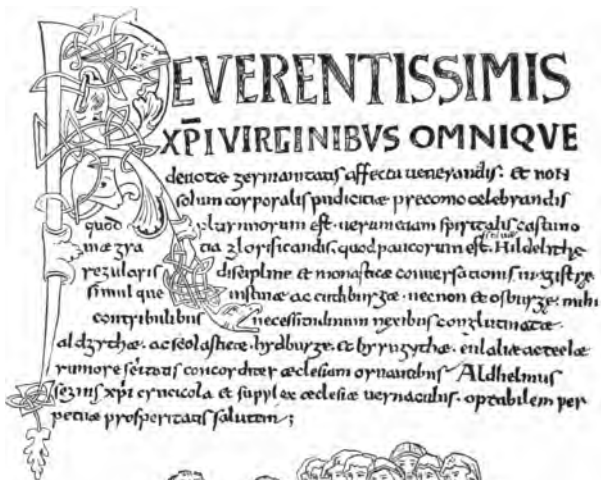 REVERENTISSIMIS
XP̄I VIRGINIBVS OMNIQVE
deuotæ germanitatis affectu uenerandis. et non
solum corporalis pudicitiæ preconio celebrandis
quod plurimorum est. uerum etiam spiritalis castimo
niæ gratia glorificandis. quod paucorum est. Hildelithę
regularis disciplinę et monasticæ conuersationis magistrę
simulque iustinæ ac cuthburgæ. necnon et osburgę. mihi
contribulibus necessitudinum nexibus conglutinatæ.
aldgythæ. ac scolasticæ. hydburgę. et byrngythæ. eulaliæ ac teclæ
rumore scitatis concorditer æclesiam ornantibus Aldhelmus
segnis xpi crucicola et supplex æclesiæ uernaculus. optabilem per
petuæ prosperitatis salutem;